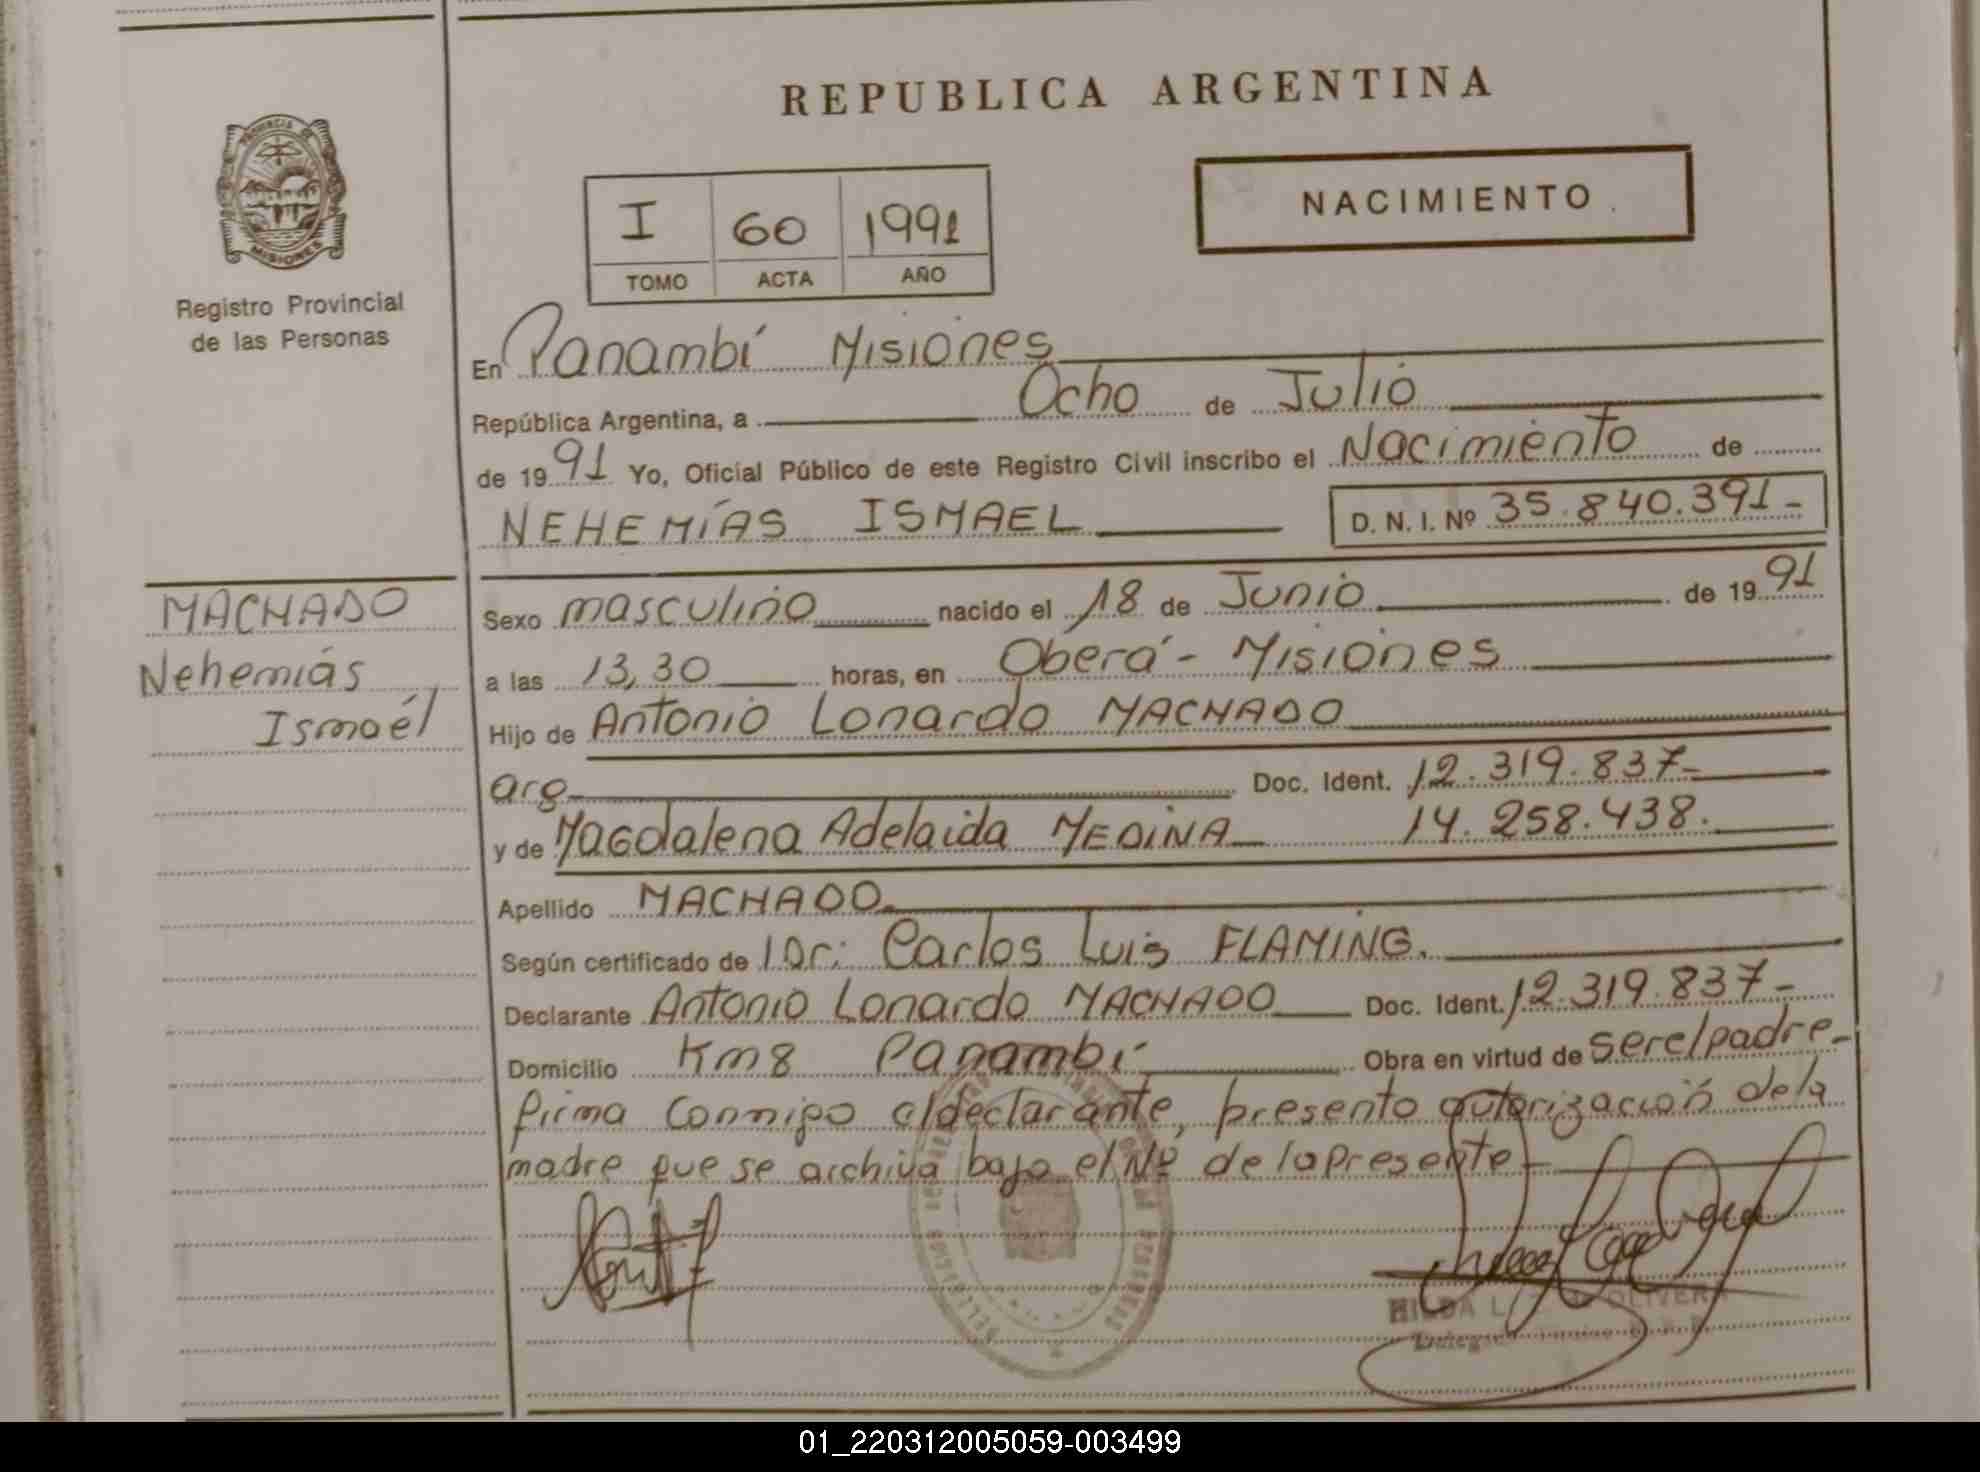 REPUBLICA ARGENTINA
PROVINCIA DE
MISIONES
Registro Provincial
de las Personas
I 60 1991
TOMO ACTA AÑO
NACIMIENTO
En Panambí Misiones
República Argentina, a Ocho de Julio
de 1991 Yo, Oficial Público de este Registro Civil inscribo el Nacimiento de
NEHEMÍAS ISMAEL D. N. I. Nº 35.840.391-
MACHADO
Nehemiás
Ismaél
Sexo masculino nacido el 18 de Junio de 1991
a las 13,30 horas, en Oberá - Misiones
Hijo de Antonio Lonardo MACHADO
arg Doc. Ident. 12.319.837-
y de Magdalena Adelaida MEDINA 14.258.438.
Apellido MACHADO
Según certificado de l Dr: Carlos Luis FLAMING.
Declarante Antonio Lonardo MACHADO Doc. Ident. 12.319.837-
Domicilio Km8 Panambí Obra en virtud de ser el padre-
firma conmigo el declarante, presento autorización de la
madre que se archiva bajo el Nº de la presente
HILDA L. OLIVERA
01_220312005059-003499